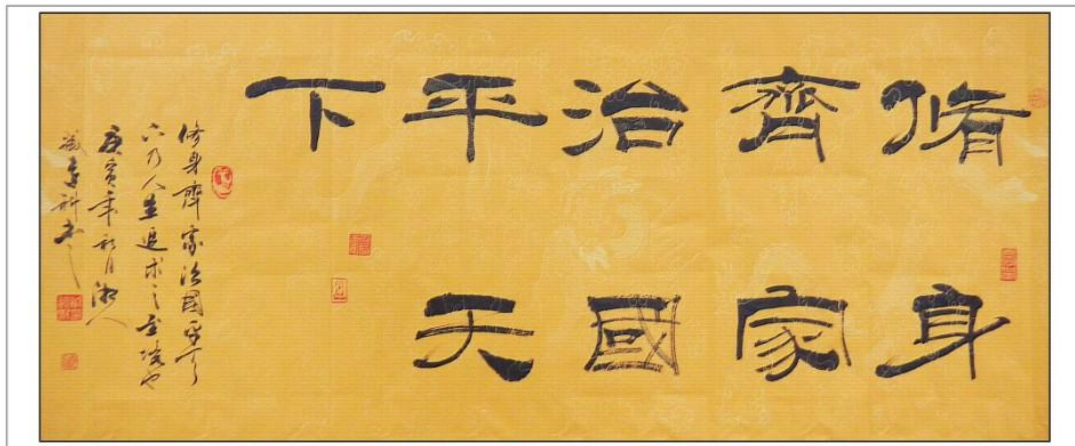 脩身
齊家
治國
平天
下
修身齊家治國平天下
乃人生追求之至境也
庚寅年月湘人
科書